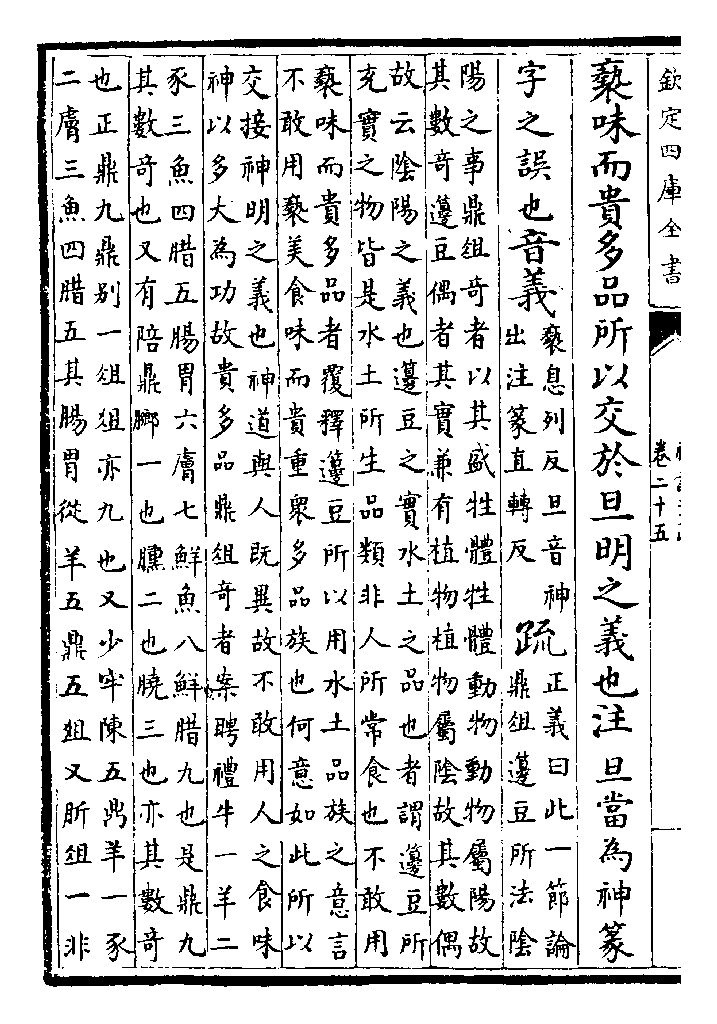 欽定四庫全書
卷二十五
褻味而貴多品所以交於旦明之義也注旦當為神篆
字之誤也音義褻息列反旦音神
出注篆直轉反
疏正義曰此一節論
鼎俎籩豆所法陰
陽之事鼎俎奇者以其盛牲體牲體動物動物屬陽故
其數奇籩豆偶者其實兼有植物植物屬陰故其數偶
故云陰陽之義也籩豆之實水土之品也者謂籩豆所
充實之物皆是水土所生品類非人所常食也不敢用
褻味而貴多品者覆釋籩豆所以用水土品族之意言
不敢用褻美食味而貴重衆多品族也何意如此所以
交接神明之義也神道與人既異故不敢用人之食味
神以多大為功故貴多品鼎俎奇者案聘禮牛一羊二
豕三魚四腊五腸胃六膚七鮮魚八鮮腊九也是鼎九
其數奇也又有陪鼎膷一也臐二也膮三也亦其數奇
也正鼎九鼎别一俎俎亦九也又少牢陳五鼎羊一豕
二膚三魚四腊五其腸胃從羊五鼎五俎又肵俎一非